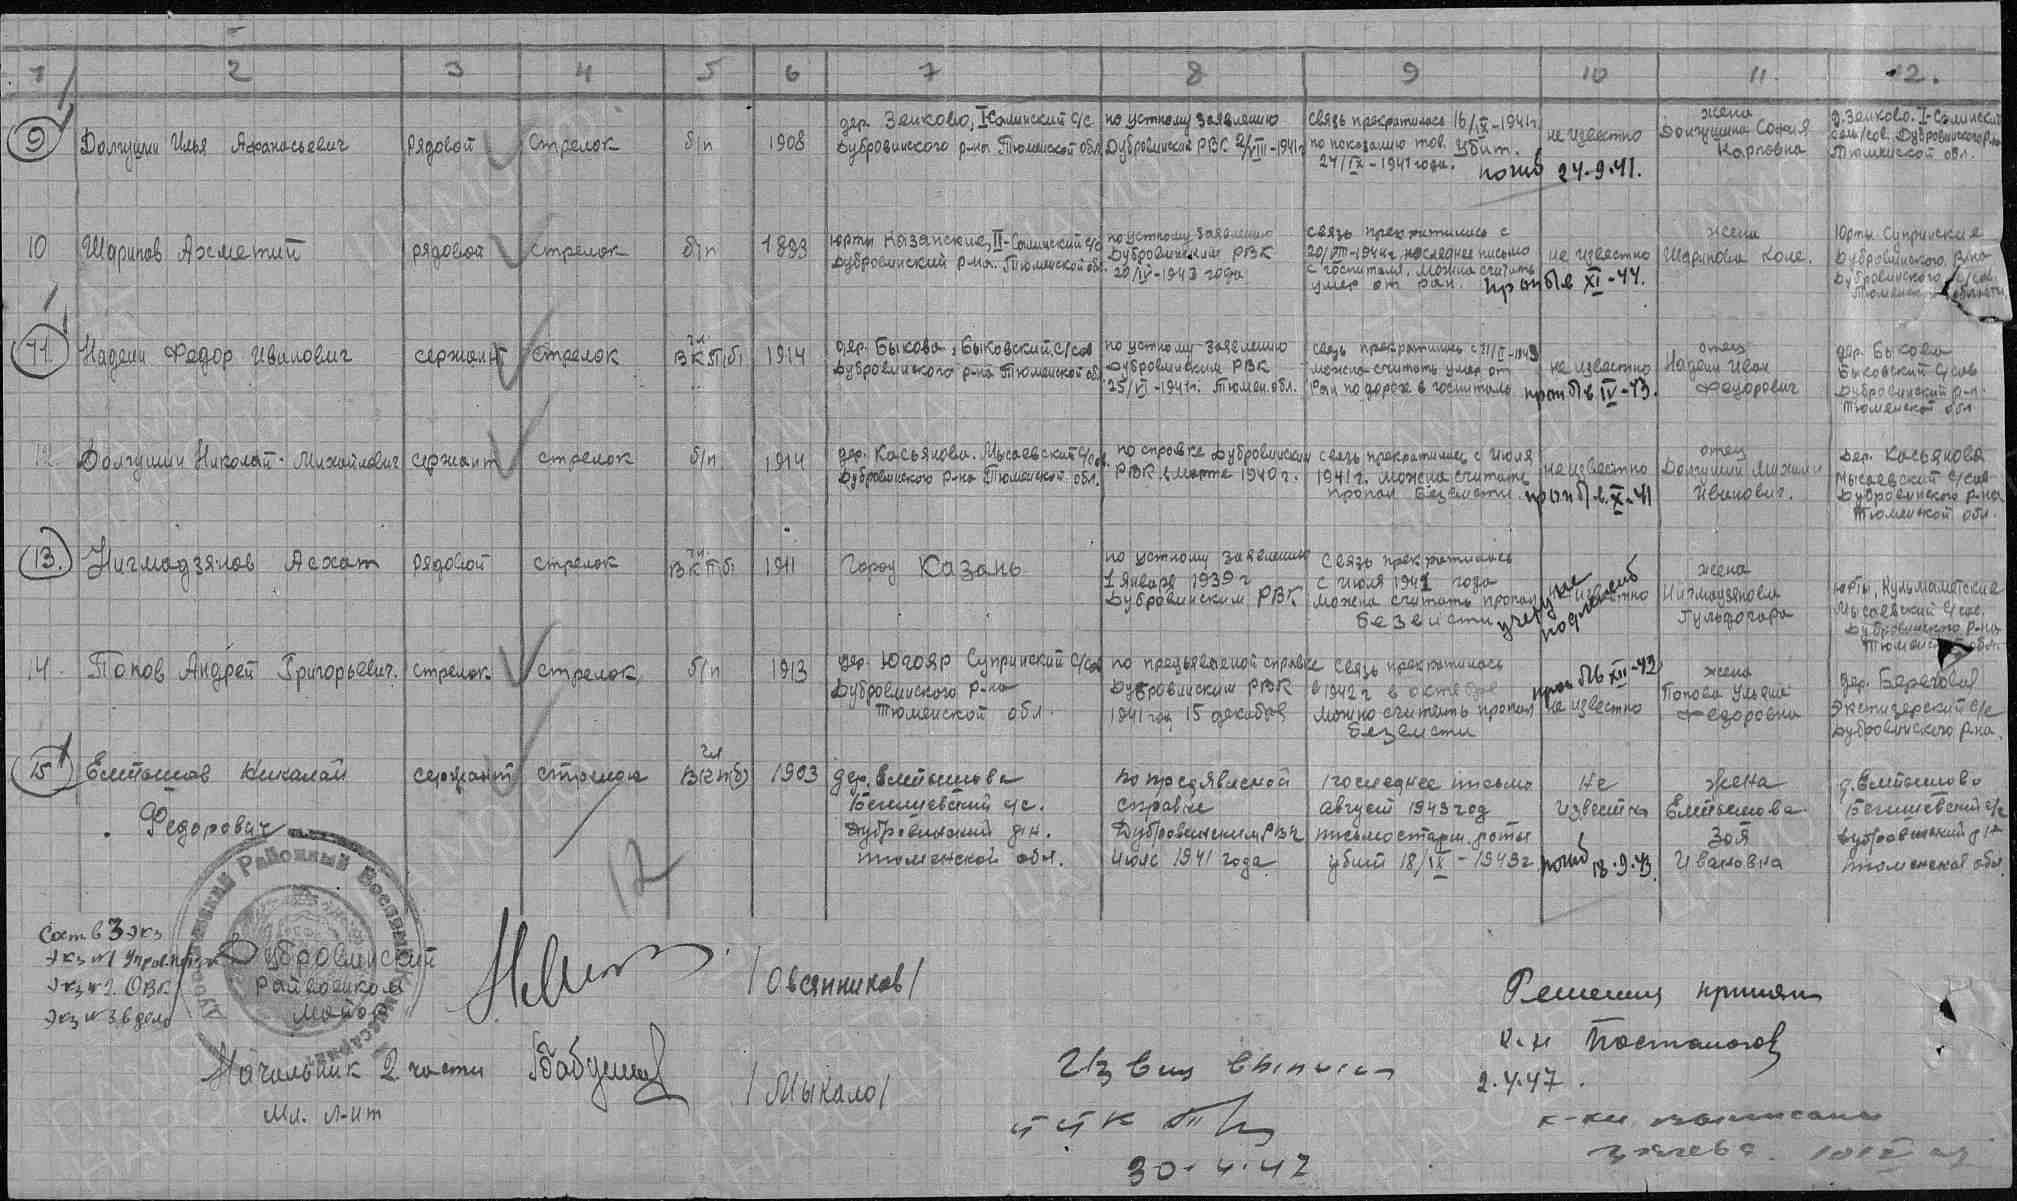 1 2 3 4 5 6 7 8 9 10 11. 12.
9 Долгушин Илья Афанасьевич рядовой стрелок б/п 1908
дер. Зенково, I-Салинский с/с
Дубровинского р-на Тюменской обл.
по устному заявлению
Дубровинский РВК 2/VIII-1941г
связь прекратилась 16/IX-1941г
по показанию тов. убит.
24/IX-1941 года.
не известно
погиб 24.9.41.
жена
Долгушина София
Карповна
д. Зенково. I-Салинский
сель/сов. Дубровинского р-на
Тюменской обл.
10 Шарипов Ахметий рядовой стрелок б/п 1893
юрты Казанские, II-Салинский с/с
Дубровинский р-на. Тюменской обл.
по устному заявлению
Дубровинским РВК
20/IV-1943 года
связь прекратилась с
последнее письмо
с госпиталя. можно считать
умер от ран.
не известно
проп б/в XI-44.
жена
Шарипова
Юрты Супринские
Дубровинского р-на
Дубровинского с/сов.
Тюменской области.
11. Надеин Федор Иванович сержант стрелок
чл.
ВКП(б) 1914
дер. Быково, Быковский с/сов
Дубровинского р-на Тюменской обл
по устному заявлению
Дубровинским РВК
25/VI-1941г. Тюмен. обл.
связь прекратилась с
можно считать умер от
ран по дороге в госпиталь
не известно
проп б/в IV-43.
отец
Надеин Иван
Федорович
дер. Быково
Быковский с/сов
Дубровинский р-н
Тюменской обл
12. Долгушин Николай Михайлович сержант стрелок б/п 1914
дер. Касьянова. Мысаевский с/сов.
Дубровинского р-на Тюменской обл.
по справке Дубровинским
РВК в марте 1940 г.
связь прекратилась с июля
1941 г. можно считать
пропал безвести
не известно
проп б/в. X-41
отец
Долгушин Михаил
Иванович.
дер. Касьянова
Мысаевский с/сов
Дубровинского р-на
Тюменской обл.
13. Нигмадзянов Асхат рядовой стрелок
чл.
ВКПб 1911
город Казань
по устному заявлению
1 января 1939 г
Дубровинским РВК
Связь прекратилась
с июля 1941 года
можно считать пропал
безвести
не известно
учету не
подлежит
жена
Нигмадзянова
Гульфогара
юрты, Кульмаметские
Мысаевский с/сов.
Дубровинского р-на
Тюменской обл.
14. Попов Андрей Григорьевич. стрелок стрелок б/п 1913
дер. Югояр Супринский с/сов
Дубровинского р-на
Тюменской обл.
по предъявленой справке
Дубровинским РВК
1941 год 15 декабря
связь прекратилась
в 1942 г в октябре
можно считать пропал
безвести
проп б/в XII-42
не известно
жена
Попова Ульяна
Федоровна
дер. Береговая
с/с
Дубровинского р-на.
15 Емтышов Николай
Федорович
сержант стрелок
чл
ВКП(б) 1903
дер. Емтышова
Бегишевский с/с.
Дубровинский р-н.
Тюменской обл.
по предявленой
справке
Дубровинским РВК
июль 1941 года
последнее письмо
август 1943 год
письмо старш. роты
убит 18/IX-1943 г.
не
известно
погиб 18.9.43.
жена
Емтышова
Зоя
Ивановна
д. Емтышово
Бегишевский с/с
Дубровинский р-н
Тюменской обл.
12
Сост. в 3 экз
экз №1
экз №2. ОВК
экз №3 в дело
Районный Военный
Дубровинский
Райвоенком
майор
/Овсянников/
Начальник 2 части
Мл. л-нт
/Мыкало/
30.4.47
Решения принял
к-н
2.4.47.